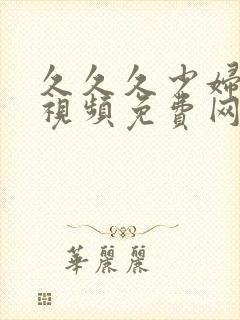 久久久少婦
視頻免費网
華麗麗